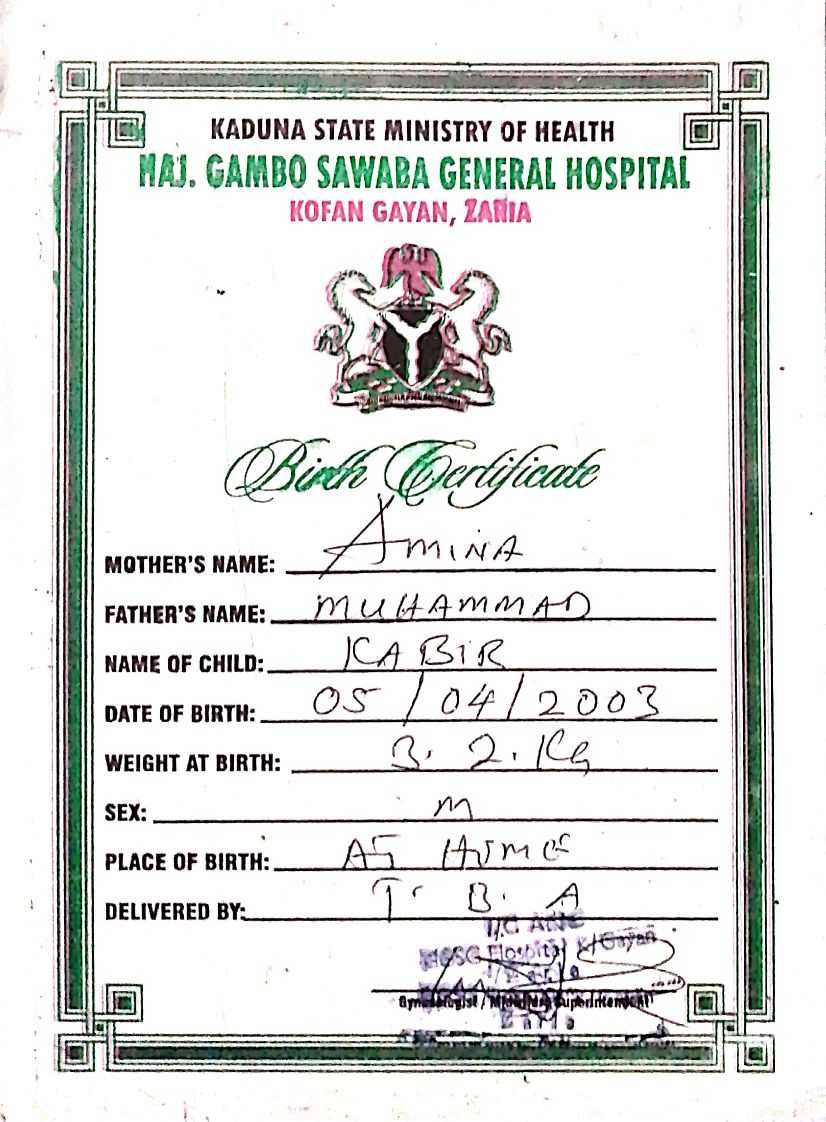 KADUNA STATE MINISTRY OF HEALTH
HAJ. GAMBO SAWABA GENERAL HOSPITAL
KOFAN GAYAN, ZARIA
Birth Certificate
MOTHER'S NAME: AMINA
FATHER'S NAME: MUHAMMAD
NAME OF CHILD: KABIR
DATE OF BIRTH: 05/04/2003
WEIGHT AT BIRTH: 3.2.Kg
SEX: M
PLACE OF BIRTH: AT HOME
DELIVERED BY: T. B. A
I/C ANC
HGSG Hospital K/Gayan
Zaria
Gynecologist / Midwifery Superintendent